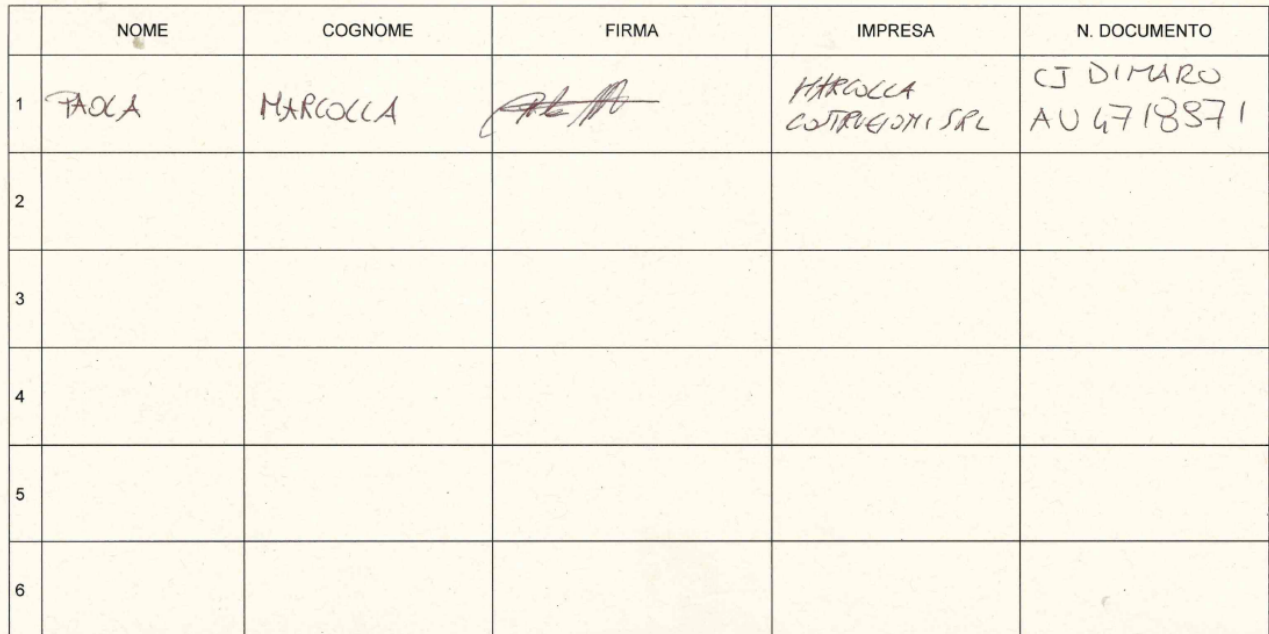 NOME COGNOME FIRMA IMPRESA N. DOCUMENTO
1 PAOLA MARCOLLA MARCOLLA CJ DIMARO
COSTRUZIONI SRL AU 4718971
2
3
4
5
6